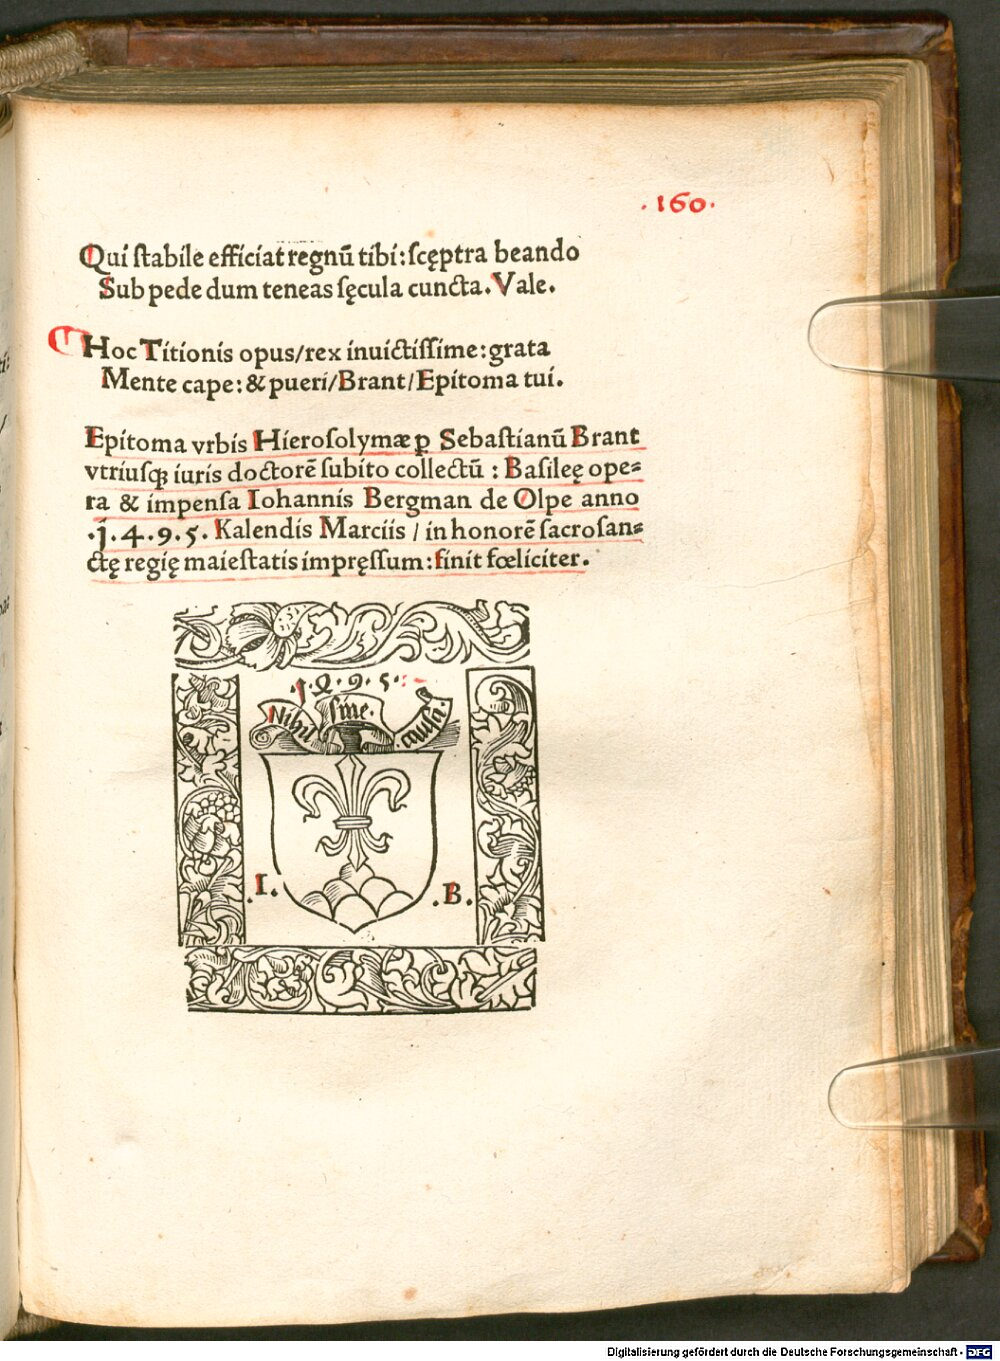 .160.
Qui ſtabile efficiat regnū tibi:ſcęptra beando
Sub pede dum teneas ſęcula cuncta. Vale.
Hoc Titionis opus/rex inuictiſſime:grata
Mente cape:& pueri/Brant/Epitoma tui.
Epitoma vrbis Hieroſolymæ ꝑ Sebaſtianū Brant
vtriuſqꝫ iuris doctorē ſubito collectū : Baſileę ope⸗
ra & impenſa Iohannis Bergman de Olpe anno
.1.4.9.5. Kalendis Marciis / in honorē ſacroſan⸗
ctę regię maieſtatis impręſſum:finit fœliciter.
.1.4.9.5.
Nihil ſine. cauſa.
.I. .B.
Digitalisierung gefördert durch die Deutsche Forschungsgemeinschaft - DFG